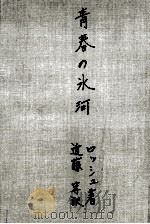 青春の氷河
ロッシュ著
近藤等訳